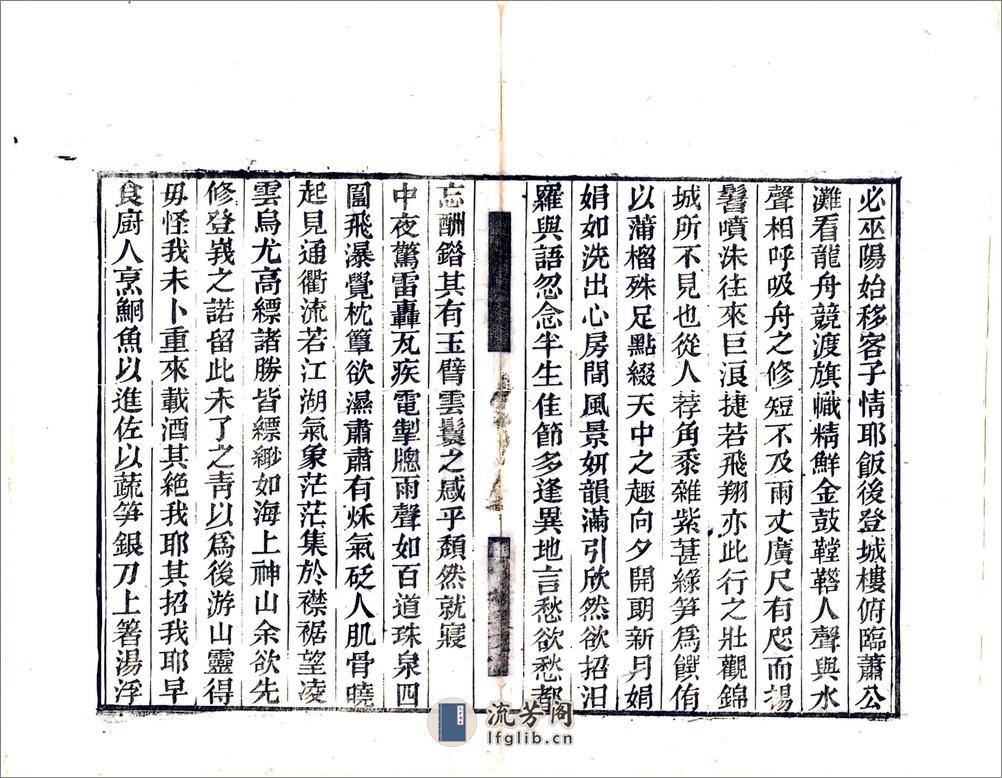 必巫陽始移客子情耶飯後登城樓俯臨蕭公
灘看龍舟競渡旗幟精鮮金鼓鞺鞳人聲與水
聲相呼吸舟之修短不及兩丈廣尺有咫而揚
鬐噴沫往來巨浪捷若飛翔亦此行之壯觀錦
城所不見也從人荐角黍雜紫葚綠笋爲饌侑
以蒲榴殊足點綴天中之趣向夕開朗新月娟
娟如洗出心房間風景妍韻滿引欣然欲招汨
羅與語忽念半生佳節多逢異地言愁欲愁都
忘酬錯其有玉臂雲鬟之感乎頹然就寢
中夜驚雷轟瓦疾電掣牕雨聲如百道珠泉四
圍飛瀑覺枕簟欲濕肅肅有秌氣砭人肌骨曉
起見通衢流若江湖氣象茫茫集於襟裾望凌
雲烏尤高縹諸勝皆縹緲如海上神山余欲先
修登峩之諾留此未了之靑以爲後游山靈得
毋怪我未卜重來載酒其絕我耶其招我耶早
食厨人烹鮦魚以進佐以蔬笋銀刀上箸湯浮
流芳阁
lfglib.cn